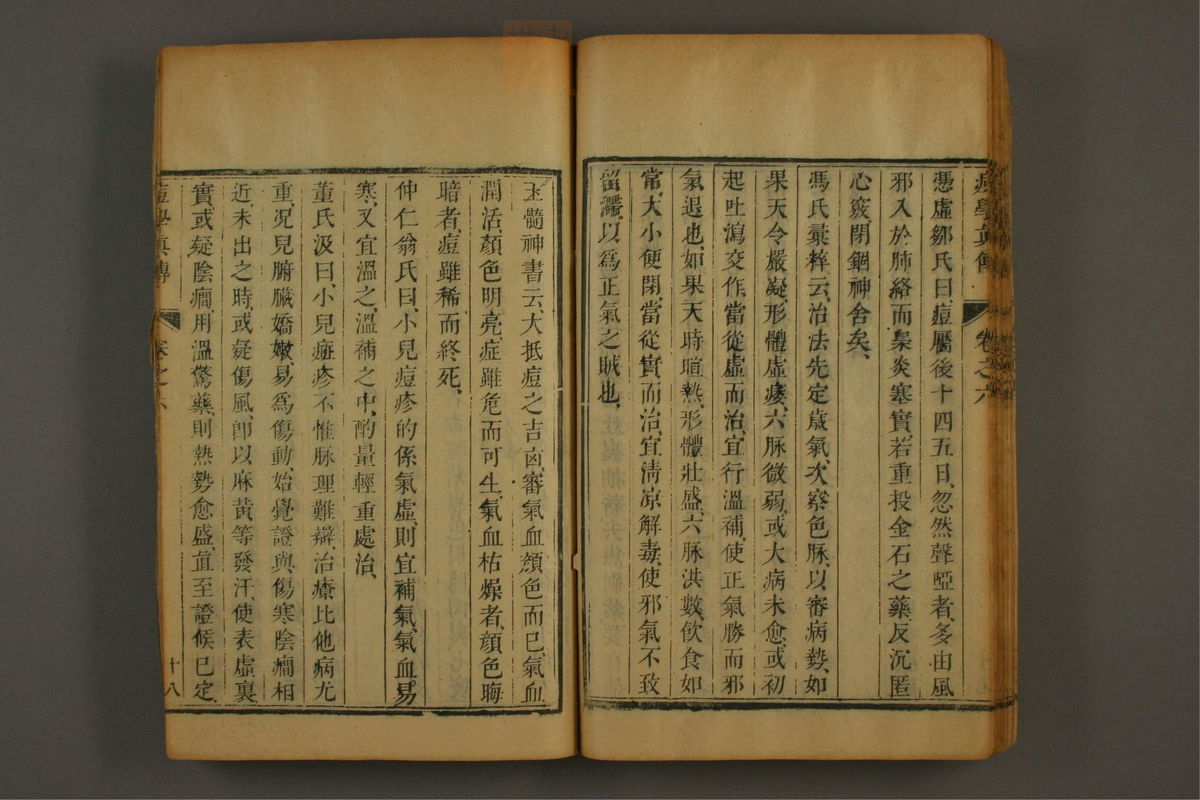 痘學真傳 卷之六
憑虛鄒氏曰、痘靨後十四五日、忽然聲啞者、多由風
邪入於肺絡、而梟炎塞實、若重投金石之藥、反沉匿
心竅、閉錮神舍矣、
馮氏彙粹云、治法先定歲氣、次察色脉、以審病勢、如
果天令嚴凝、形體虛痿、六脉微弱、或大病未愈、或初
起吐瀉交作、當從虛而治、宜行溫補、使正氣勝而邪
氣退也、如果天時暄熱、形體壯盛、六脉洪數、飲食如
常、大小便閉、當從實而治、宜清凉解毒、使邪氣不致
留滯、以爲正氣之賊也、
玉髓神書云、大抵痘之吉凶、審氣血顏色而已、氣血
潤活、顏色明亮、症雖危而可生、氣血枯燥者、顏色晦
暗者、痘雖稀而終死、
仲仁翁氏曰、小兒痘疹的係氣虛、則宜補氣、氣血易
寒、又宜溫之、溫補之中、酌量輕重處治、
董氏汲曰、小兒痘疹、不惟脉理難辯、治療比他病尤
重、况兒腑臟嬌嫩、易爲傷動、始覺證與傷寒陰癎相
近、未出之時、或疑傷風、卽以麻黃等發汗、使表虛裏
實、或疑陰癎、用溫驚藥、則熱勢愈盛、直至證候已定、
痘學真傳 卷之六 十八